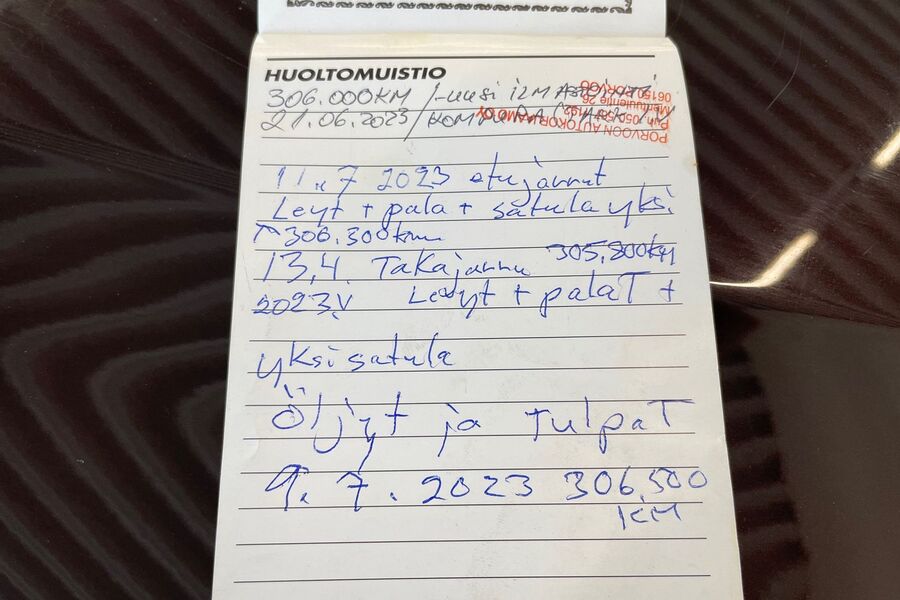 HUOLTOMUISTIO
306.000KM /-uusi ILMASTOINTI
21.06.2023 /KOMPURA
PORVOON AUTOKORJAAMO OY
Mertuulentie 26
06150 PORVOO
11.7 2023 etujarrut
Leyt + pala + satula yksi
↑ 306.300km
13.4. Takajarru 305.800KM
2023V. Levyt + palaT +
yksi satula
Öljyt ja TulpaT
9.7.2023 306.500
KM